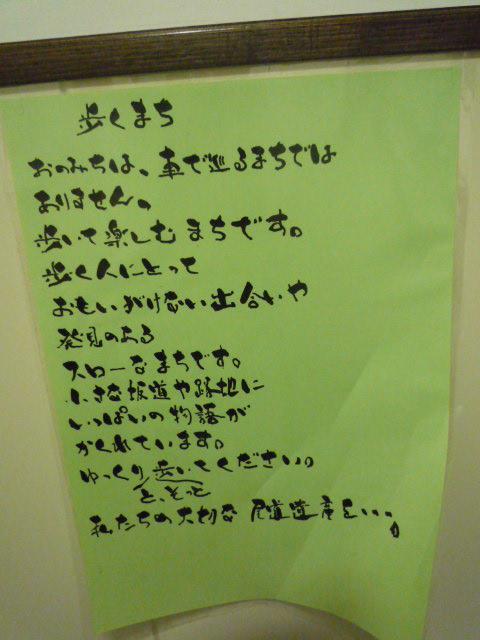 歩くまち
おのみちは、車で巡るまちでは
ありません。
歩いて楽しむまちです。
歩く人にとって
おもいがけない出合いや
発見のある
スローなまちです。
小さな坂道や路地に
いっぱいの物語が
かくれています。
ゆっくり歩いてください。
そっと
私たちの大切な尾道遺産を…。